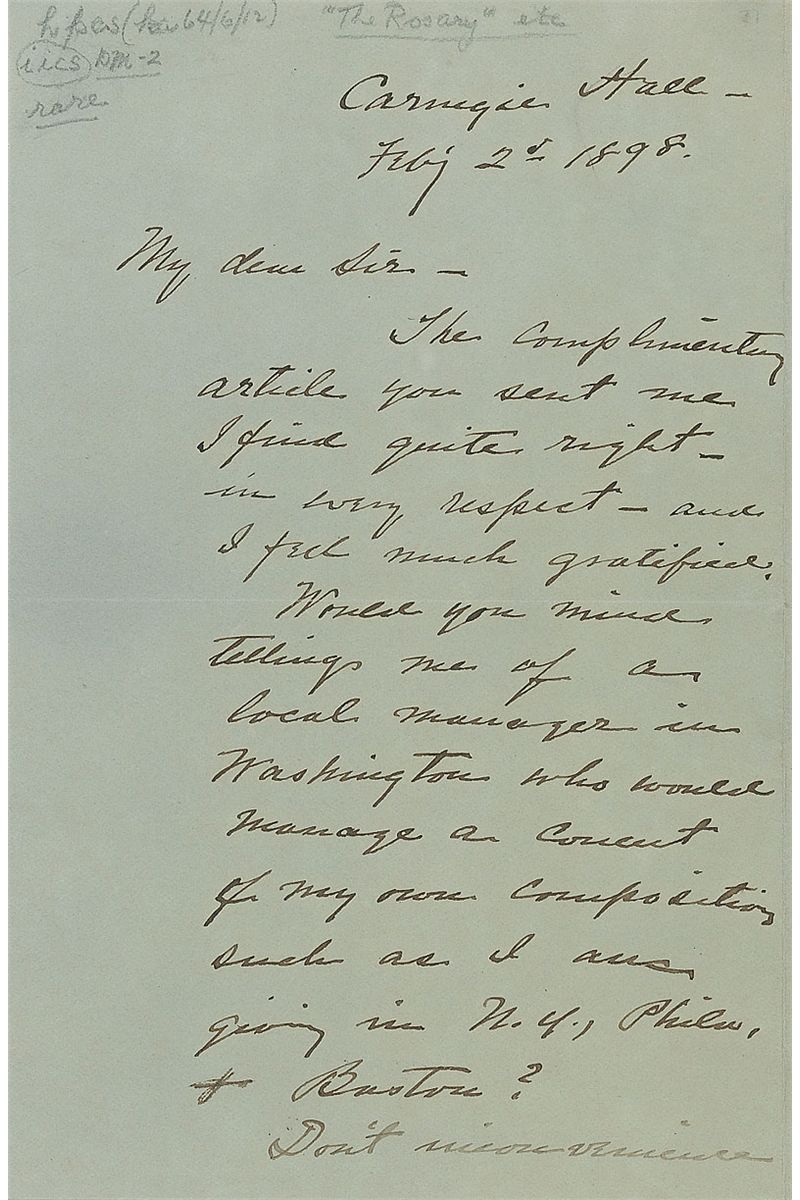 "The Rosary" etc
iics DM-2
rare
Carnegie Hall –
Feb'y 2d 1898.
My dear Sir –
The complimentary
article you sent me
I find quite right –
in every respect – and
I feel much gratified.
Would you mind
telling me of a
local manager in
Washington who would
manage a concert
of my own compositions
such as I am
giving in N.Y., Phila,
+ Boston?
Don't inconvenience